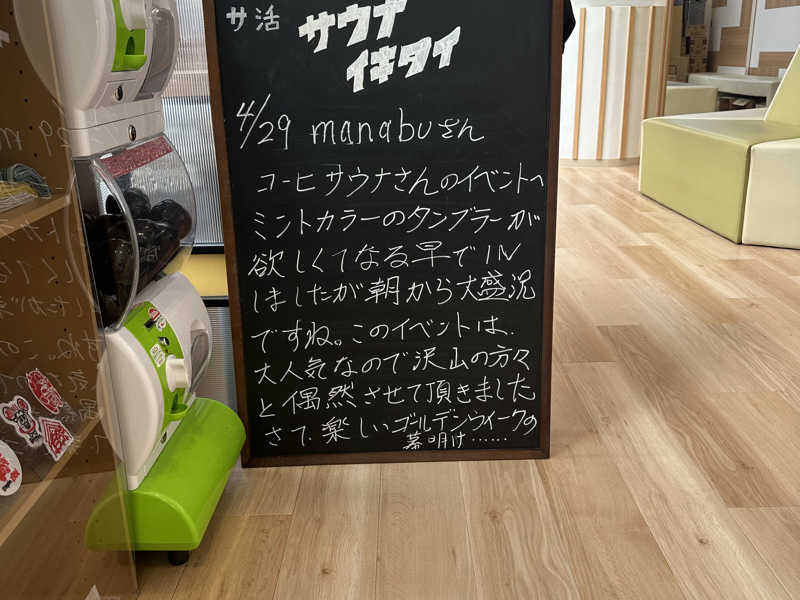 サ活
サウナ
イキタイ
4/29 manabuさん
コーヒサウナさんのイベントへ
ミントカラーのタンブラーが
欲しくてなる早でIN
しましたが朝から大盛況
ですね。このイベントは、
大人気なので沢山の方々
と偶然させて頂きました
さて、楽しいゴールデンウイークの
幕明け……